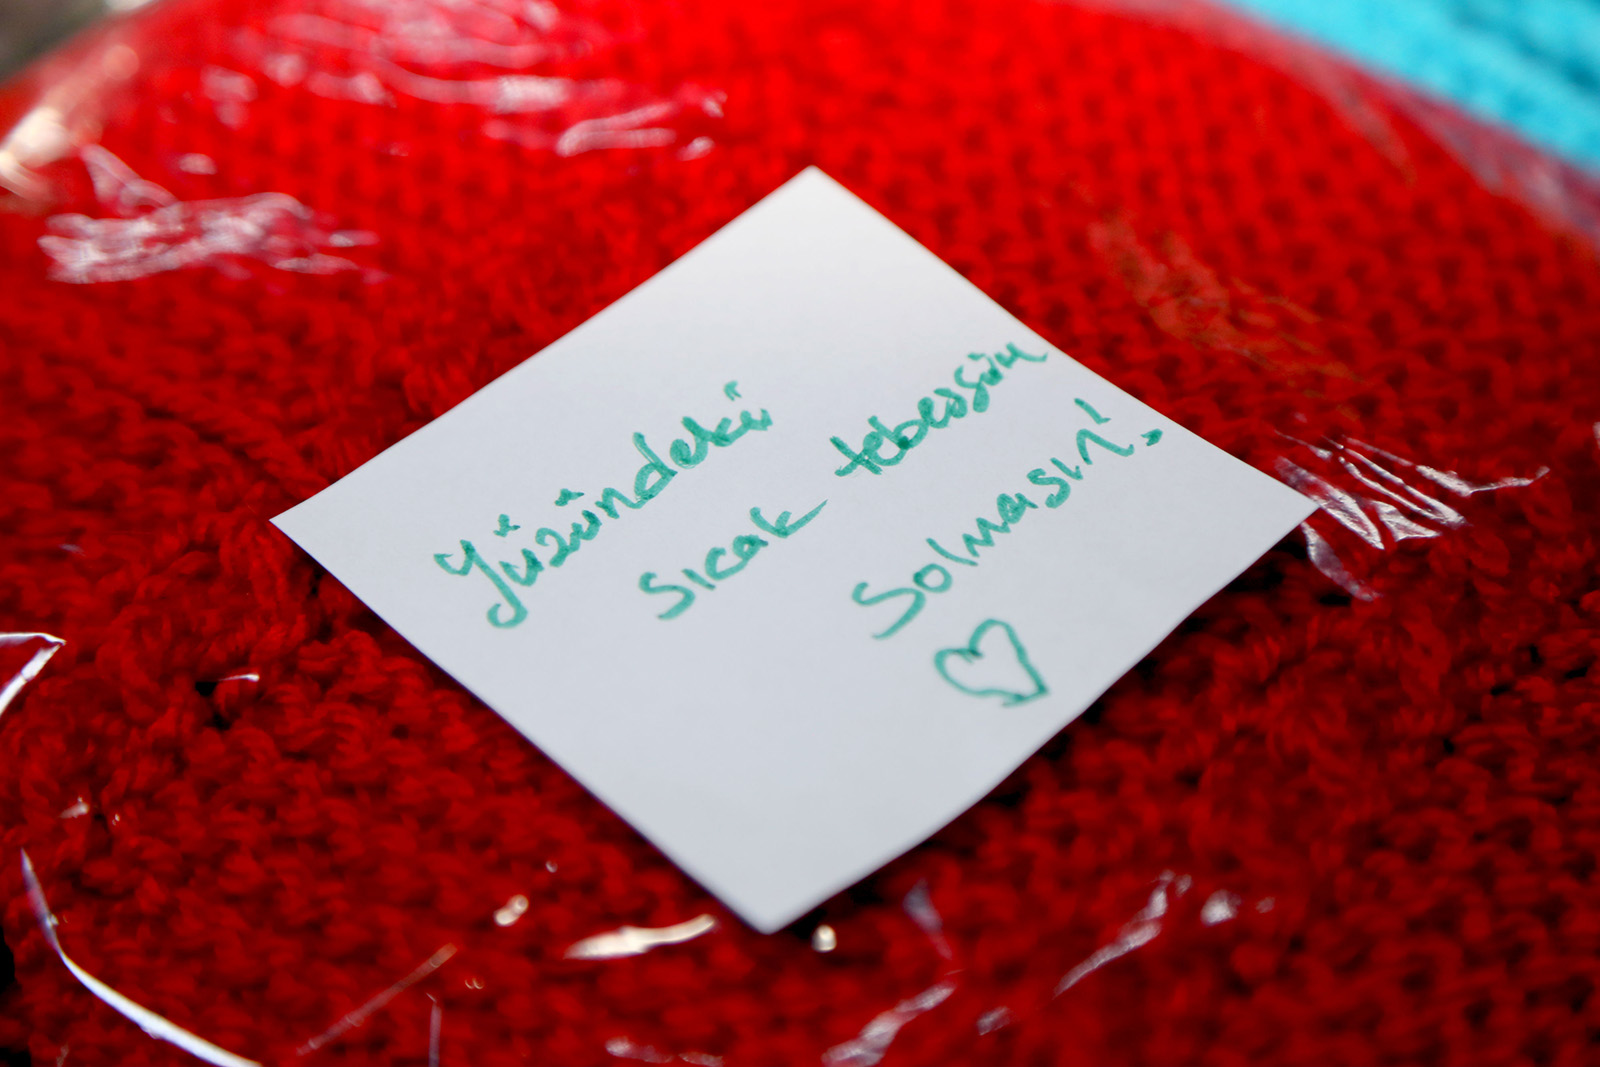 Yüzündeki
sıcak tebessüm
Solmasın!